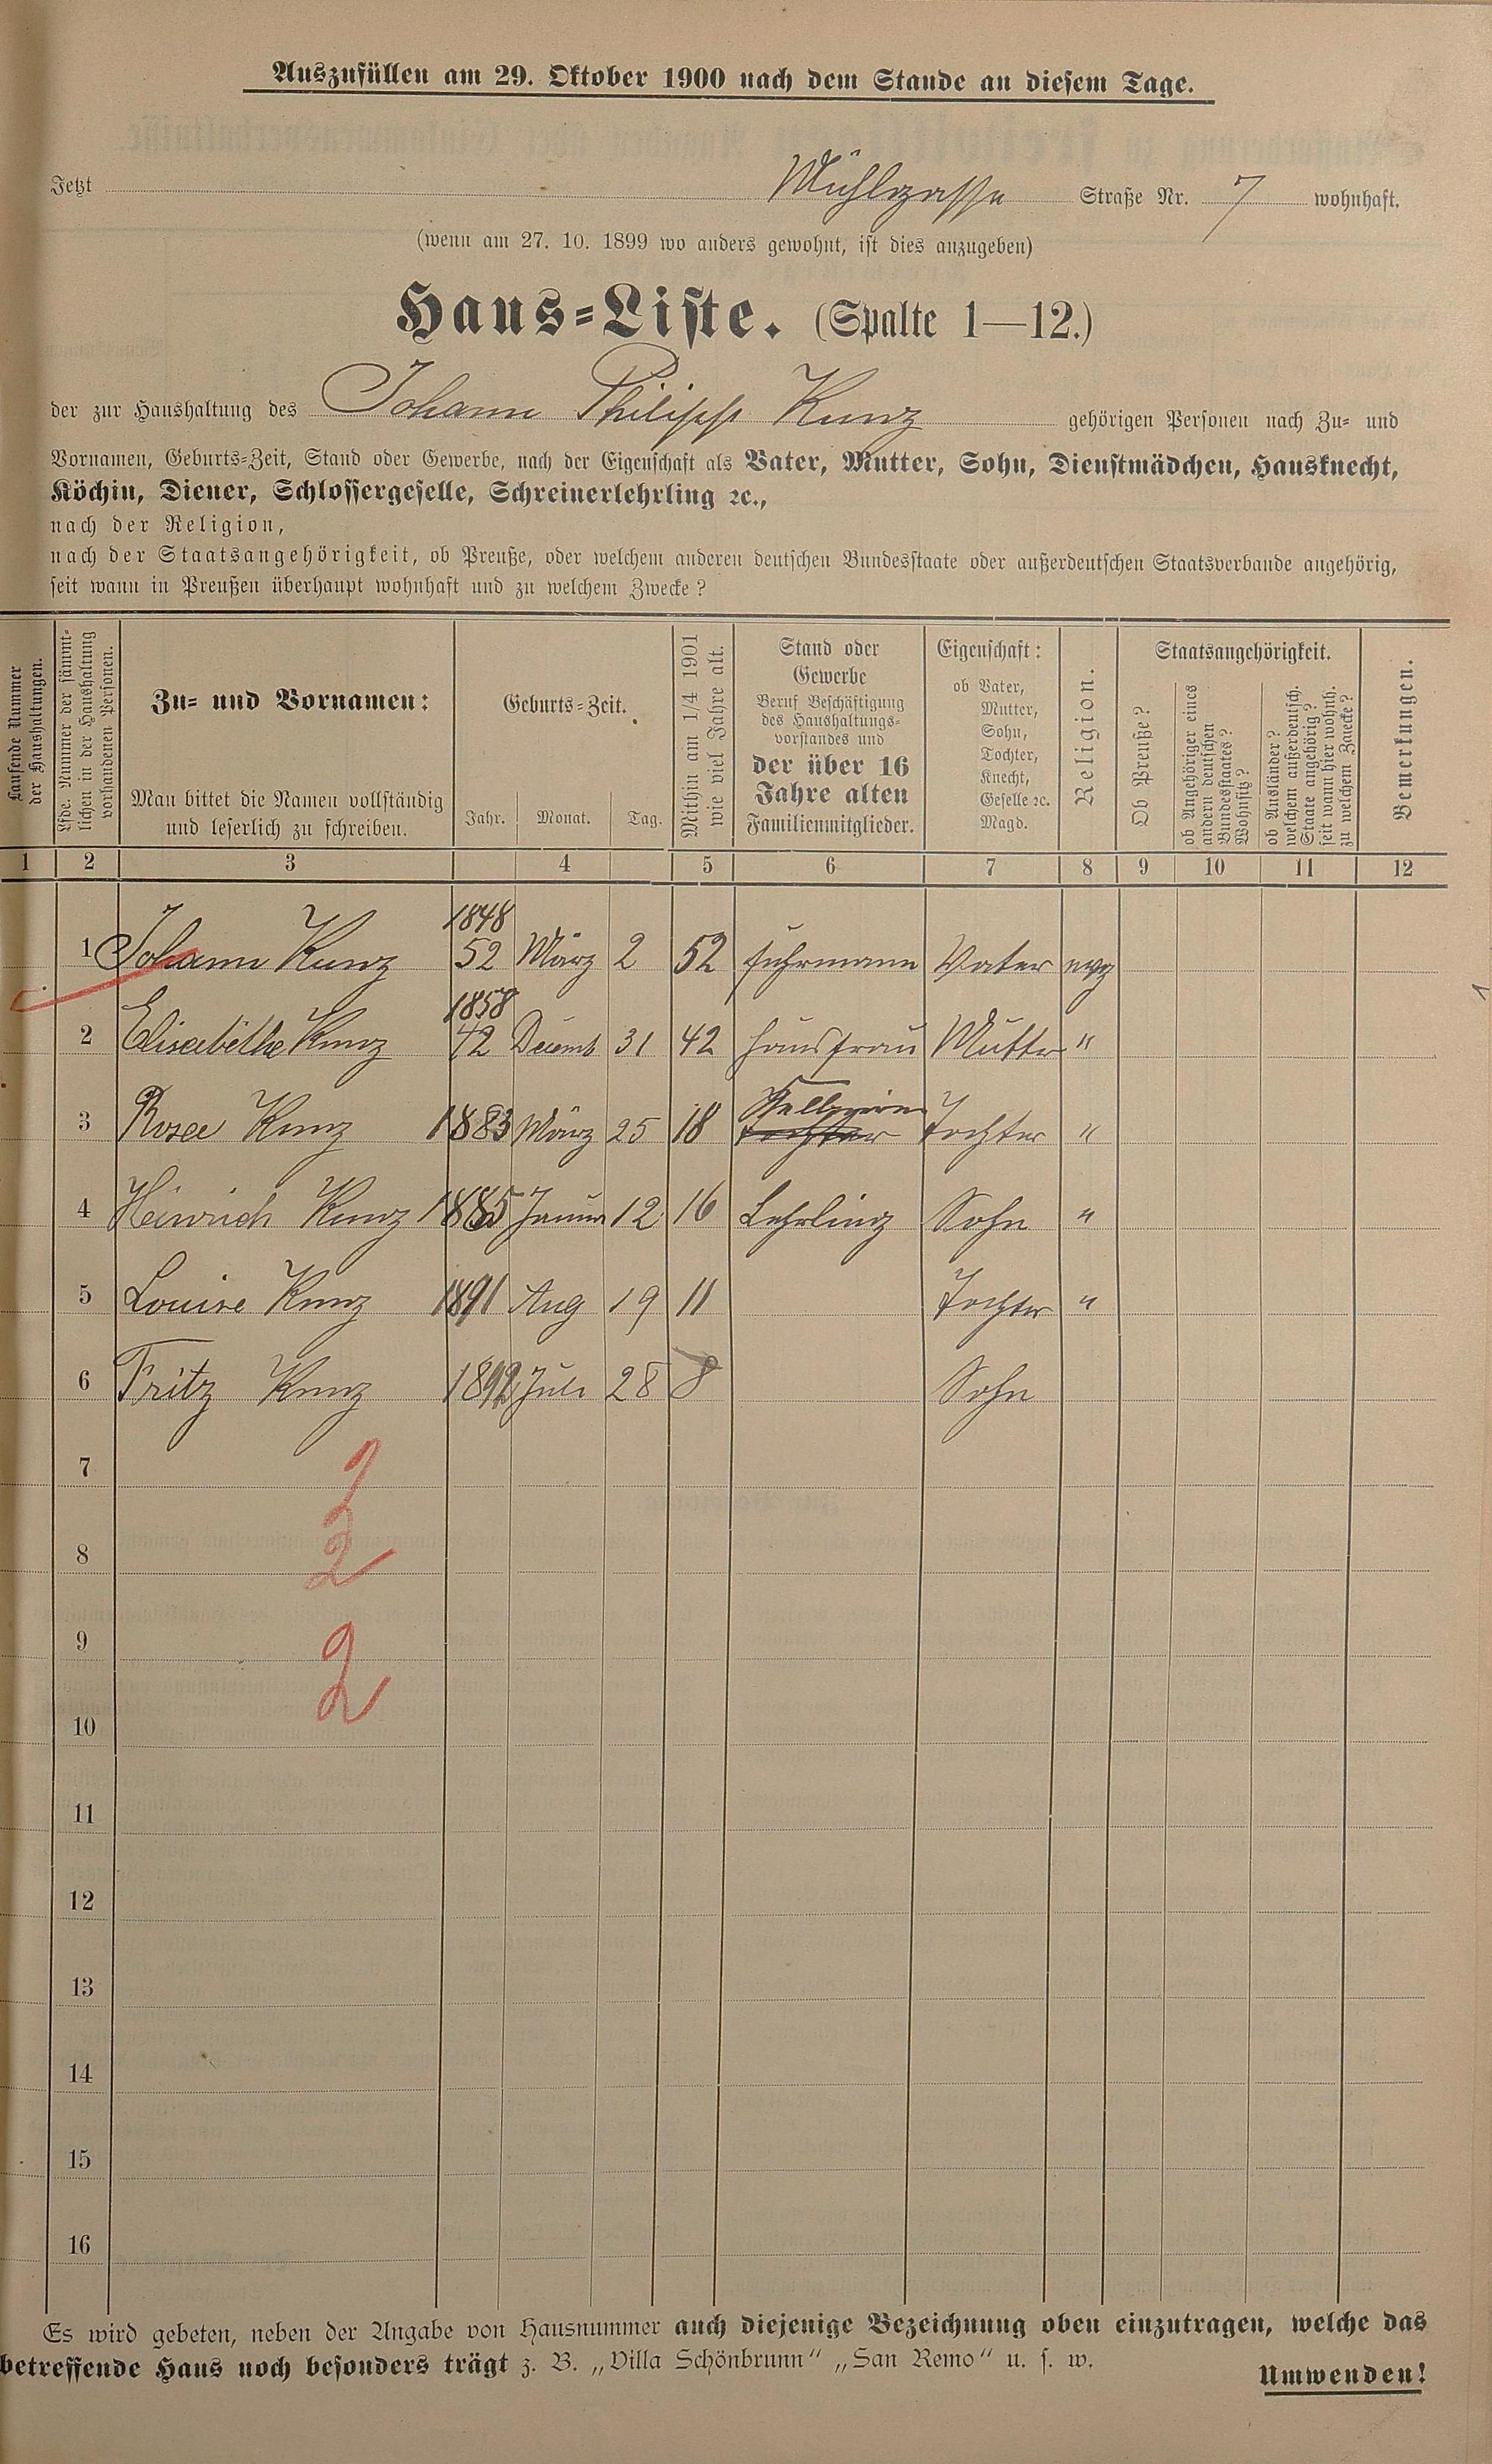 Auszufüllen am 29. Oktober 1900 nach dem Stande an diesem Tage.
Jetzt Mühlgasse Straße Nr. 7 wohnhaft.
(wenn am 27. 10. 1899 wo anders gewohnt, ist dies anzugeben)
Haus=Liste. (Spalte 1—12.)
der zur Haushaltung des Johann Philipp Kunz gehörigen Personen nach Zu= und
Vornamen, Geburts=Zeit, Stand oder Gewerbe, nach der Eigenschaft als Vater, Mutter, Sohn, Dienstmädchen, Hausknecht,
Köchin, Diener, Schlossergeselle, Schreinerlehrling ꝛc.,
nach der Religion,
nach der Staatsangehörigkeit, ob Preuße, oder welchem anderen deutschen Bundesstaate oder außerdeutschen Staatsverbande angehörig,
seit wann in Preußen überhaupt wohnhaft und zu welchem Zwecke?
Laufende Nummer
der Haushaltungen.
Lfde. Nummer der sämmt-
lichen in der Haushaltung
vorhandenen Personen.
Zu= und Vornamen:
Man bittet die Namen vollständig
und leserlich zu schreiben.
Geburts=Zeit.
Jahr. Monat. Tag.
Mithin am 1/4 1901
wie viel Jahre alt.
Stand oder
Gewerbe
Beruf Beschäftigung
des Haushaltungs=
vorstandes und
der über 16
Jahre alten
Familienmitglieder.
Eigenschaft:
ob Vater,
Mutter,
Sohn,
Tochter,
Knecht,
Geselle ꝛc.
Magd.
Religion.
Staatsangehörigkeit.
Ob Preuße?
ob Angehöriger eines
andern deutschen
Bundesstaates?
Wohnsitz?
ob Ausländer?
welchem außerdeutsch.
Staate angehörig?
seit wann hier wohnh.
zu welchem Zwecke?
Bemerkungen.
1 2 3 4 5 6 7 8 9 10 11 12
1848
1 Johann Kunz 52 März 2 52 Fuhrmann Vater evg
1858
2 Elisabethe Kunz 42 Decemb 31 42 Hausfrau Mutter "
3 Rosa Kunz 1883 März 25 18 Tochter Tochter "
4 Heinrich Kunz 1885 Januar 12 16 Lehrling Sohn "
5 Louise Kunz 1891 Aug 19 11 Tochter "
6 Fritz Kunz 1892 Juli 28 8 Sohn
7
2
8
2
9
2
10
11
12
13
14
15
16
Es wird gebeten, neben der Angabe von Hausnummer auch diejenige Bezeichnung oben einzutragen, welche das
betreffende Haus noch besonders trägt z. B. „Villa Schönbrunn“ „San Remo“ u. s. w.
Umwenden!